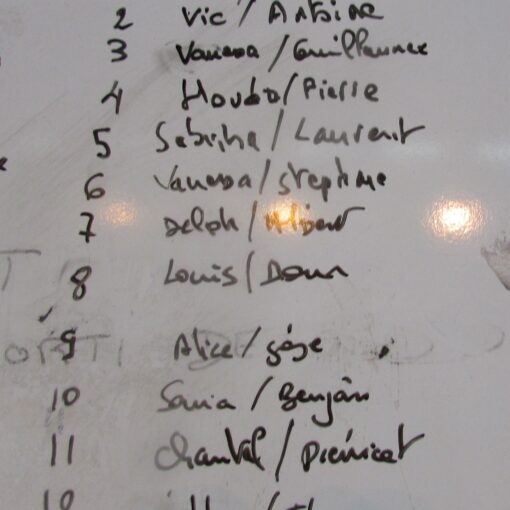 2 Vic / Antoine
3 Vanessa / Guillaume
4 / Pierre
5 Sabrina / Laurent
6 Vanessa / Stephane
7 Delph / Albert
8 Louis /
9 Alice /
10 Sania / Benjamin
11 Chantal /